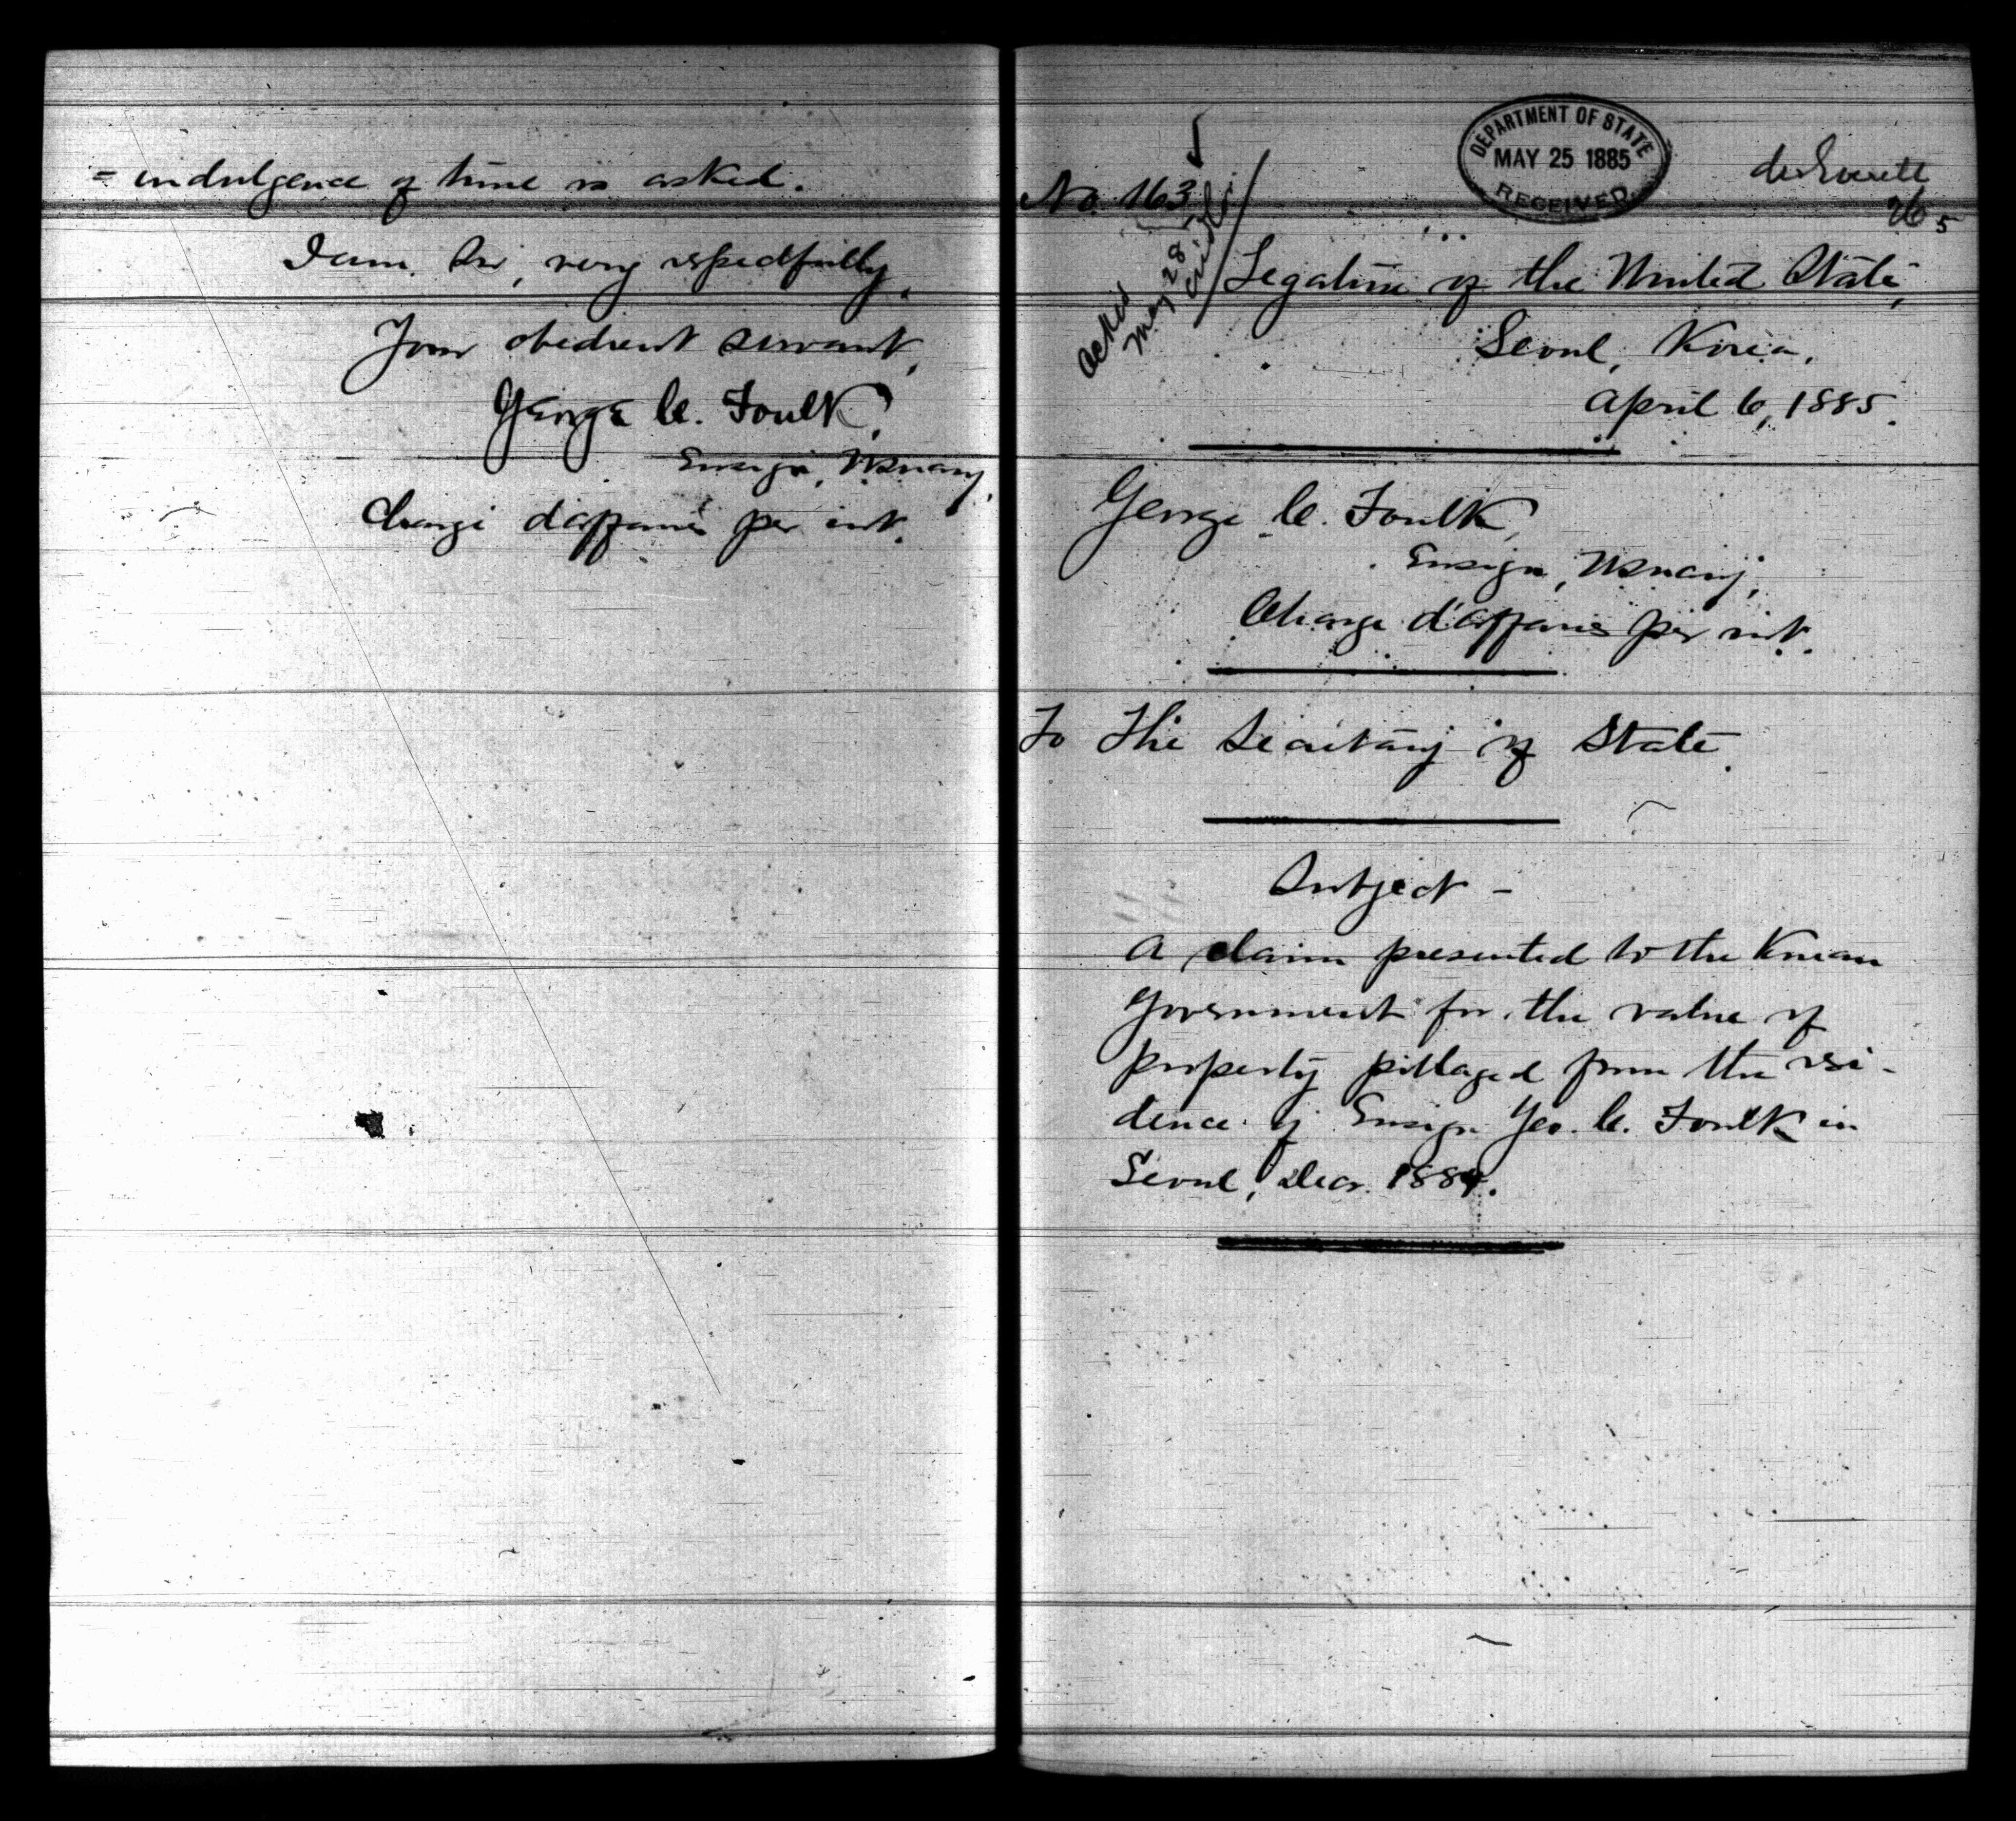 = indulgence of time is asked.
I am, Sir, very respectfully,
Your obedient servant,
George C. Foulk,
Ensign, U.S. Navy,
Chargé d'affaires per int.
No. 163
DEPARTMENT OF STATE
MAY 25 1885
RECEIVED
26
5
Ackd
May 28
Legation of the United States,
Seoul, Korea,
April 6, 1885.
George C. Foulk,
Ensign, U.S. Navy,
Charge d'affaires per int.
To The Secretary of State.
Subject -
A claim presented to the Korean
Government for the value of
property pillaged from the resi-
dence of Ensign Geo. C. Foulk in
Seoul, Decr. 1884.